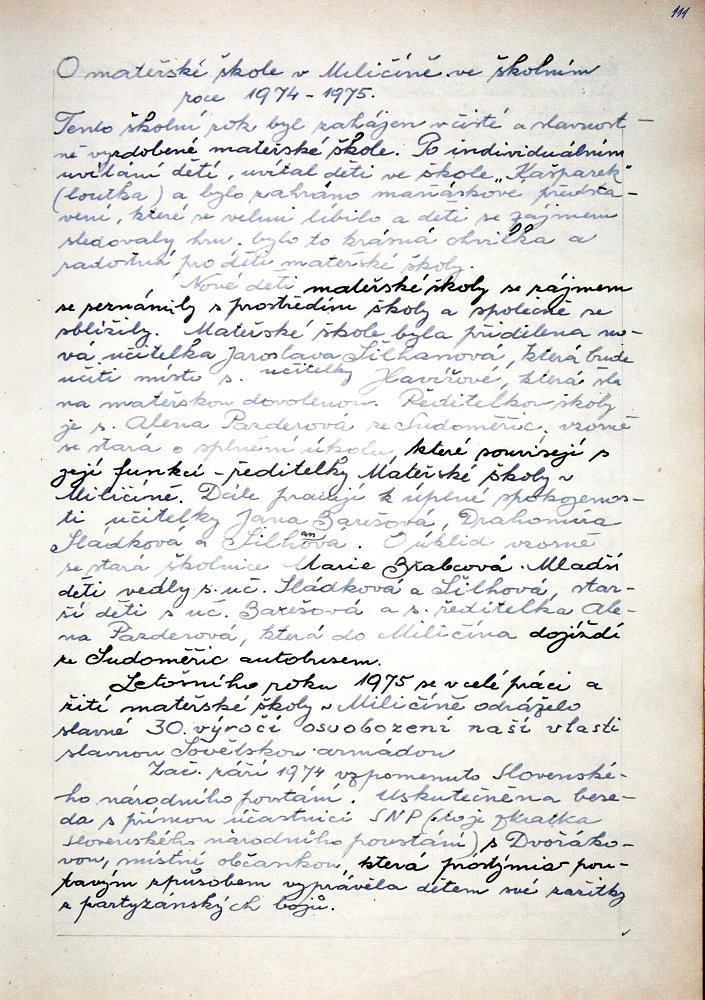 111
O mateřské škole v Miličíně ve školním
roce 1974 - 1975.
Tento školní rok byl zahájen v čisté a slavnost-
ně vyzdobené mateřské škole. Po individuálním
uvítání dětí, uvítal děti ve škole "Kašparek"
(loutka) a bylo zahráno maňáskové předsta-
vení, které se velmi líbilo a děti se zájmem
sledovaly hru. bylo to krásná chvilka a
radostná pro děti mateřské školy.
Nové děti mateřské školy se zájmem
se seznámily s prostředím školy a společně se
sblížily. Mateřské škole byla přidělena no-
vá učitelka Jaroslava Šilhanová, která bude
učiti místo s. učitelky Havířové, která šla
na mateřskou dovolenou. Ředitelkou školy
je s. Alena Pazderová ze Sudoměřic, vzorně
se stará o splnění úkolu, které souvisejí s
její funkcí - ředitelky Mateřské školy v
Miličíně. Dále pracují k úplné spokojenos-
ti učitelky Jana Barešová, Drahomíra
Sládková a Šilhanova. O úklid vzorně
se stará školnice Marie Brabcová. Mladší
děti vedly s. uč. Sládková a Šilhová, star-
ší děti s uč. Barešová a s. ředitelka Ale-
na Pazderová, která do Miličína dojíždí
ze Sudoměřic autobusem.
Letošního roku 1975 se v celé práci a
žití mateřské školy v Miličíně odráželo
slavné 30. výročí osvobození naší vlasti
slavnou Sovětskou armádou
Zač. září 1974 vzpomenuto Slovenské-
ho národního povstání. Uskutečněna bese-
da s přímou účastnicí SNP (to je zkratka
Slovenského národního povstání) s Dvořáko-
vou, místní občankou, která prostým a pou-
tavým způsobem vyprávěla dětem své zážitky
z partyzánských bojů.